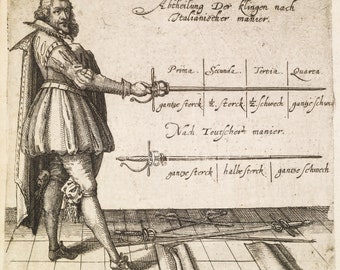 Abtheilung Der klingen nach
Italianischer manier.
Prima Secunda Tertia Quarta
gantze sterck ½ sterck ½ schwech gantze schwech
Nach Teutscher manier.
gantze sterck halbe sterck gantze schwech